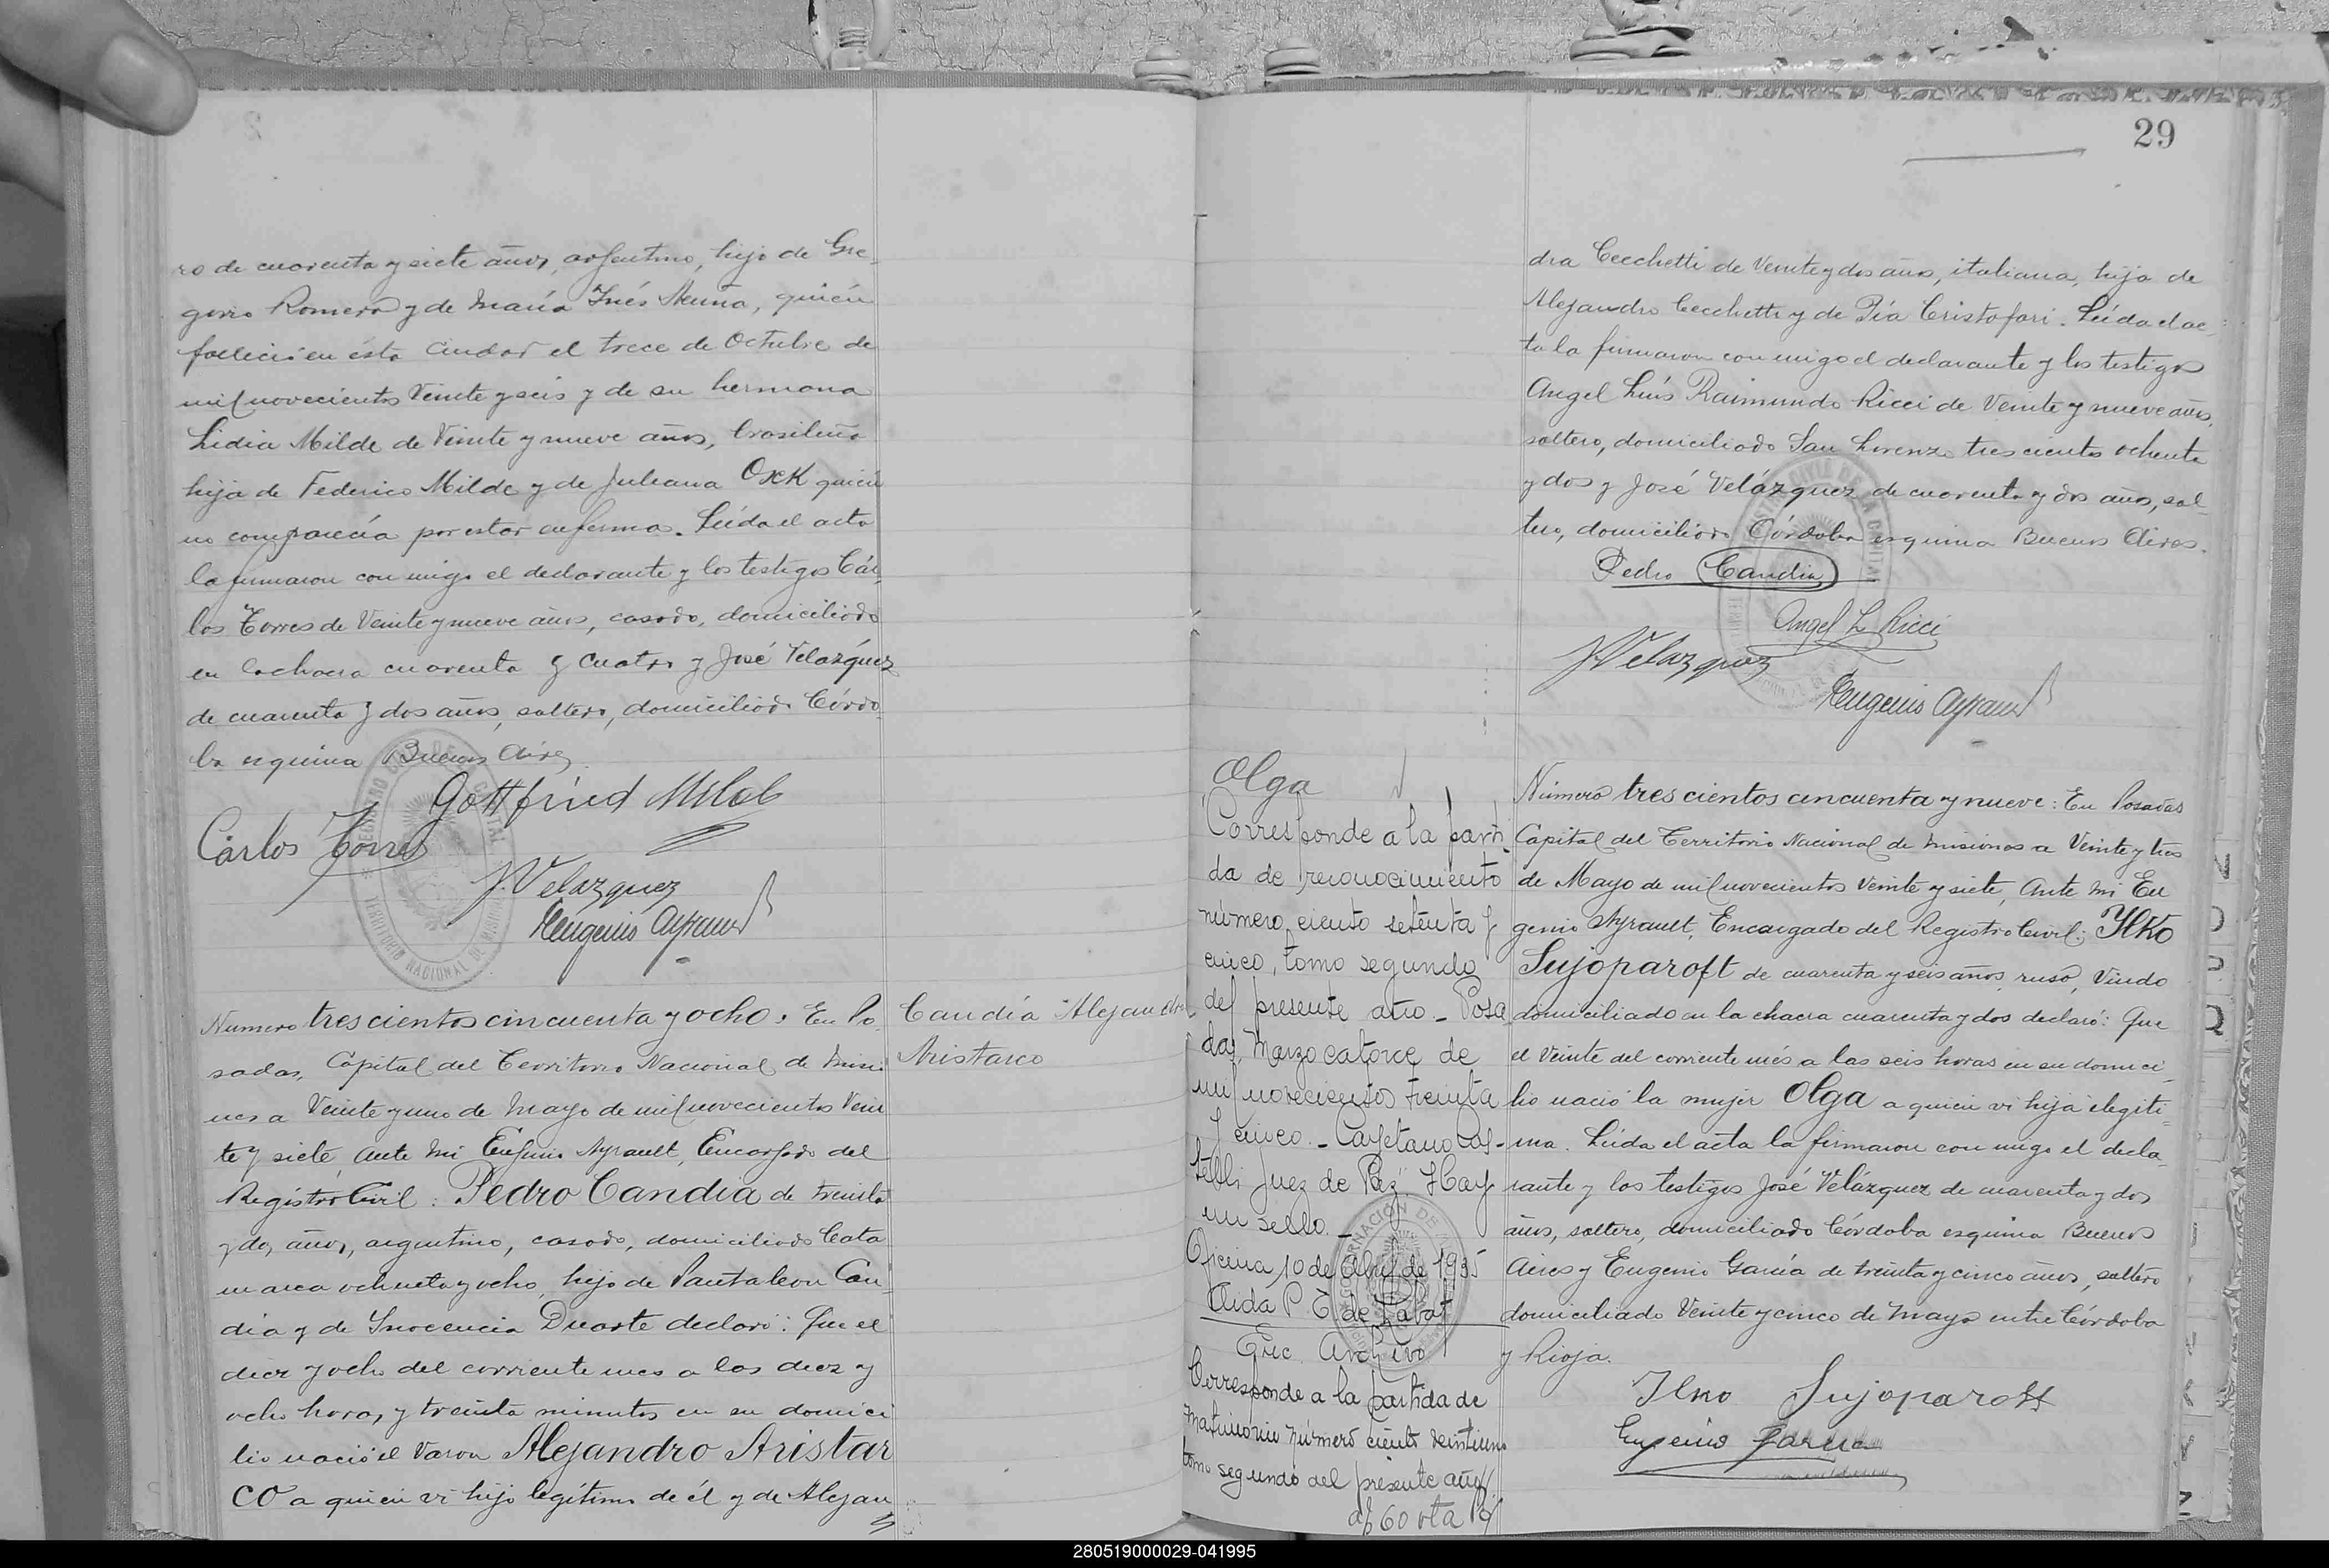 ro de cuarenta y siete años, argentino, hijo de Gre-
gorio Romero y de María Inés Acuña, quién
falleció en ésta Ciudad el trece de Octubre de
mil novecientos Veinte y seis y de su hermana
Lidia Milde de Veinte y nueve años, brasileña
hija de Federico Milde y de Juliana Oxck quién
no comparecía por estar enferma. Leída el acta
la firmaron con migo el declarante y los testigos Cár-
los Torres de Veinte y nueve años, casado, domiciliado
en la chacra cuarenta y cuatro y José Velázquez
de cuarenta y dos años, soltero, domiciliado Córdo-
ba esquina Buenos Aires
Gottfried Milde
Carlos Torres
J. Velazquez
Eugenio Ayrault
Numero trescientos cincuenta y ocho: En Po-
sadas, Capital del Territorio Nacional de Misio-
nes a Veinte y uno de Mayo de mil novecientos Vein
te y siete, ante mi Eugenio Ayrault, Encargado del
Registro Civil: Pedro Candia de treinta
y dos años, argentino, casado, domiciliado Cata
marca ochenta y ocho, hijo de Pantaleon Can-
dia y de Inocencia Duarte declaró: Que el
diez y ocho del corriente mes a las diez y
ocho horas y treinta minutos en su domici
lio nació el Varon Alejandro Aristar
co a quien vi hijo legítimo de él y de Alejan
Candía Alejandro
Aristarco
29
dra Cecchetti de Veinte y dos años, italiana, hija de
Alejandro Cecchetti y de Pía Cristofari. Leída el ac-
ta la firmaron con migo el declarante y los testigos
Angel Luís Raimundo Ricci de Veinte y nueve años,
soltero, domiciliado San Lorenzo trescientos ochenta
y dos y José Velázquez de cuarenta y dos años, sol-
tero, domiciliado Córdoba esquina Buenos Aires.
Pedro Candia
Angel L Ricci
J. Velazquez
Eugenio Ayrault
Olga
Corresponde a la parti-
da de reconocimiento
número ciento setenta y
cinco, tomo segundo
del presente año. - Posa
das, Marzo catorce de
mil novecientos treinta
y cinco. - Cayetano Cas-
telli Juez de Paz. Hay
un sello. -
Oficina 10 de Abril de 1935
Aida P. T. de Labat
Enc. Archivo
Corresponde a la partida de
Matrimonio número ciento veintiuno
tomo segundo del presente año
al f 60 vta
Número trescientos cincuenta y nueve: En Posadas
Capital del Territorio Nacional de Misiones a Veinte y tres
de Mayo de mil novecientos Veinte y siete, Ante mi Eu
genio Ayrault, Encargado del Registro Civil; Ylko
Sujoparoft de cuarenta y seis años, ruso, Viudo
domiciliado en la chacra cuarenta y dos declaró: Que
el Veinte del corriente més a las seis horas en su domici-
lio nació la mujer Olga a quien vi hija ilegíti-
ma. Leída el acta la firmaron con migo el decla-
rante y los testigos José Velázquez de cuarenta y dos
años, soltero, domiciliado Córdoba esquina Buenos
Aires y Eugenio García de treinta y cinco años, soltero
domiciliado Veinte y cinco de Mayo entre Córdoba
y Rioja.
Ilko Sujoparoff
Eugenio Garcia
280519000029-041995